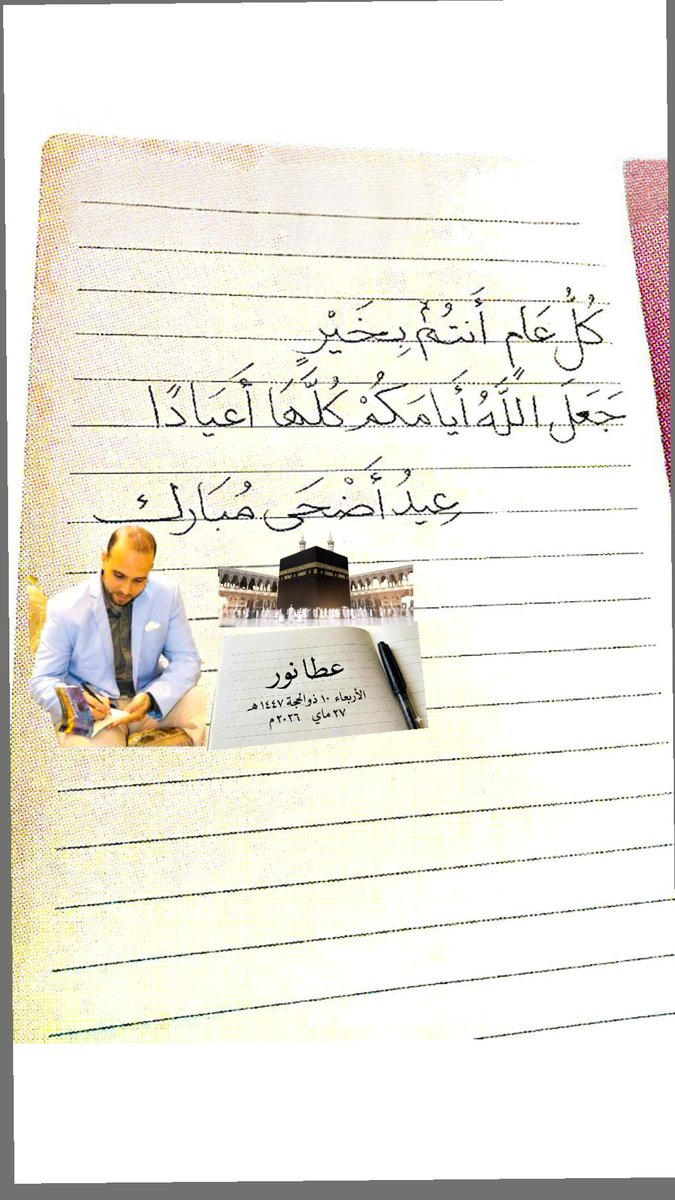 كُلُّ عَامٍ أَنتُمْ بِخَيْرٍ
جَعَلَ اللَّهُ أَيامَكُمْ كُلَّهَا أَعَيَادًا
عِيدُ أَضْحَى مُبَارك
عطا نور
الأربعاء ١٠ ذوالحجة ١٤٤٧هـ
٢٧ ماي ٢٠٢٦م